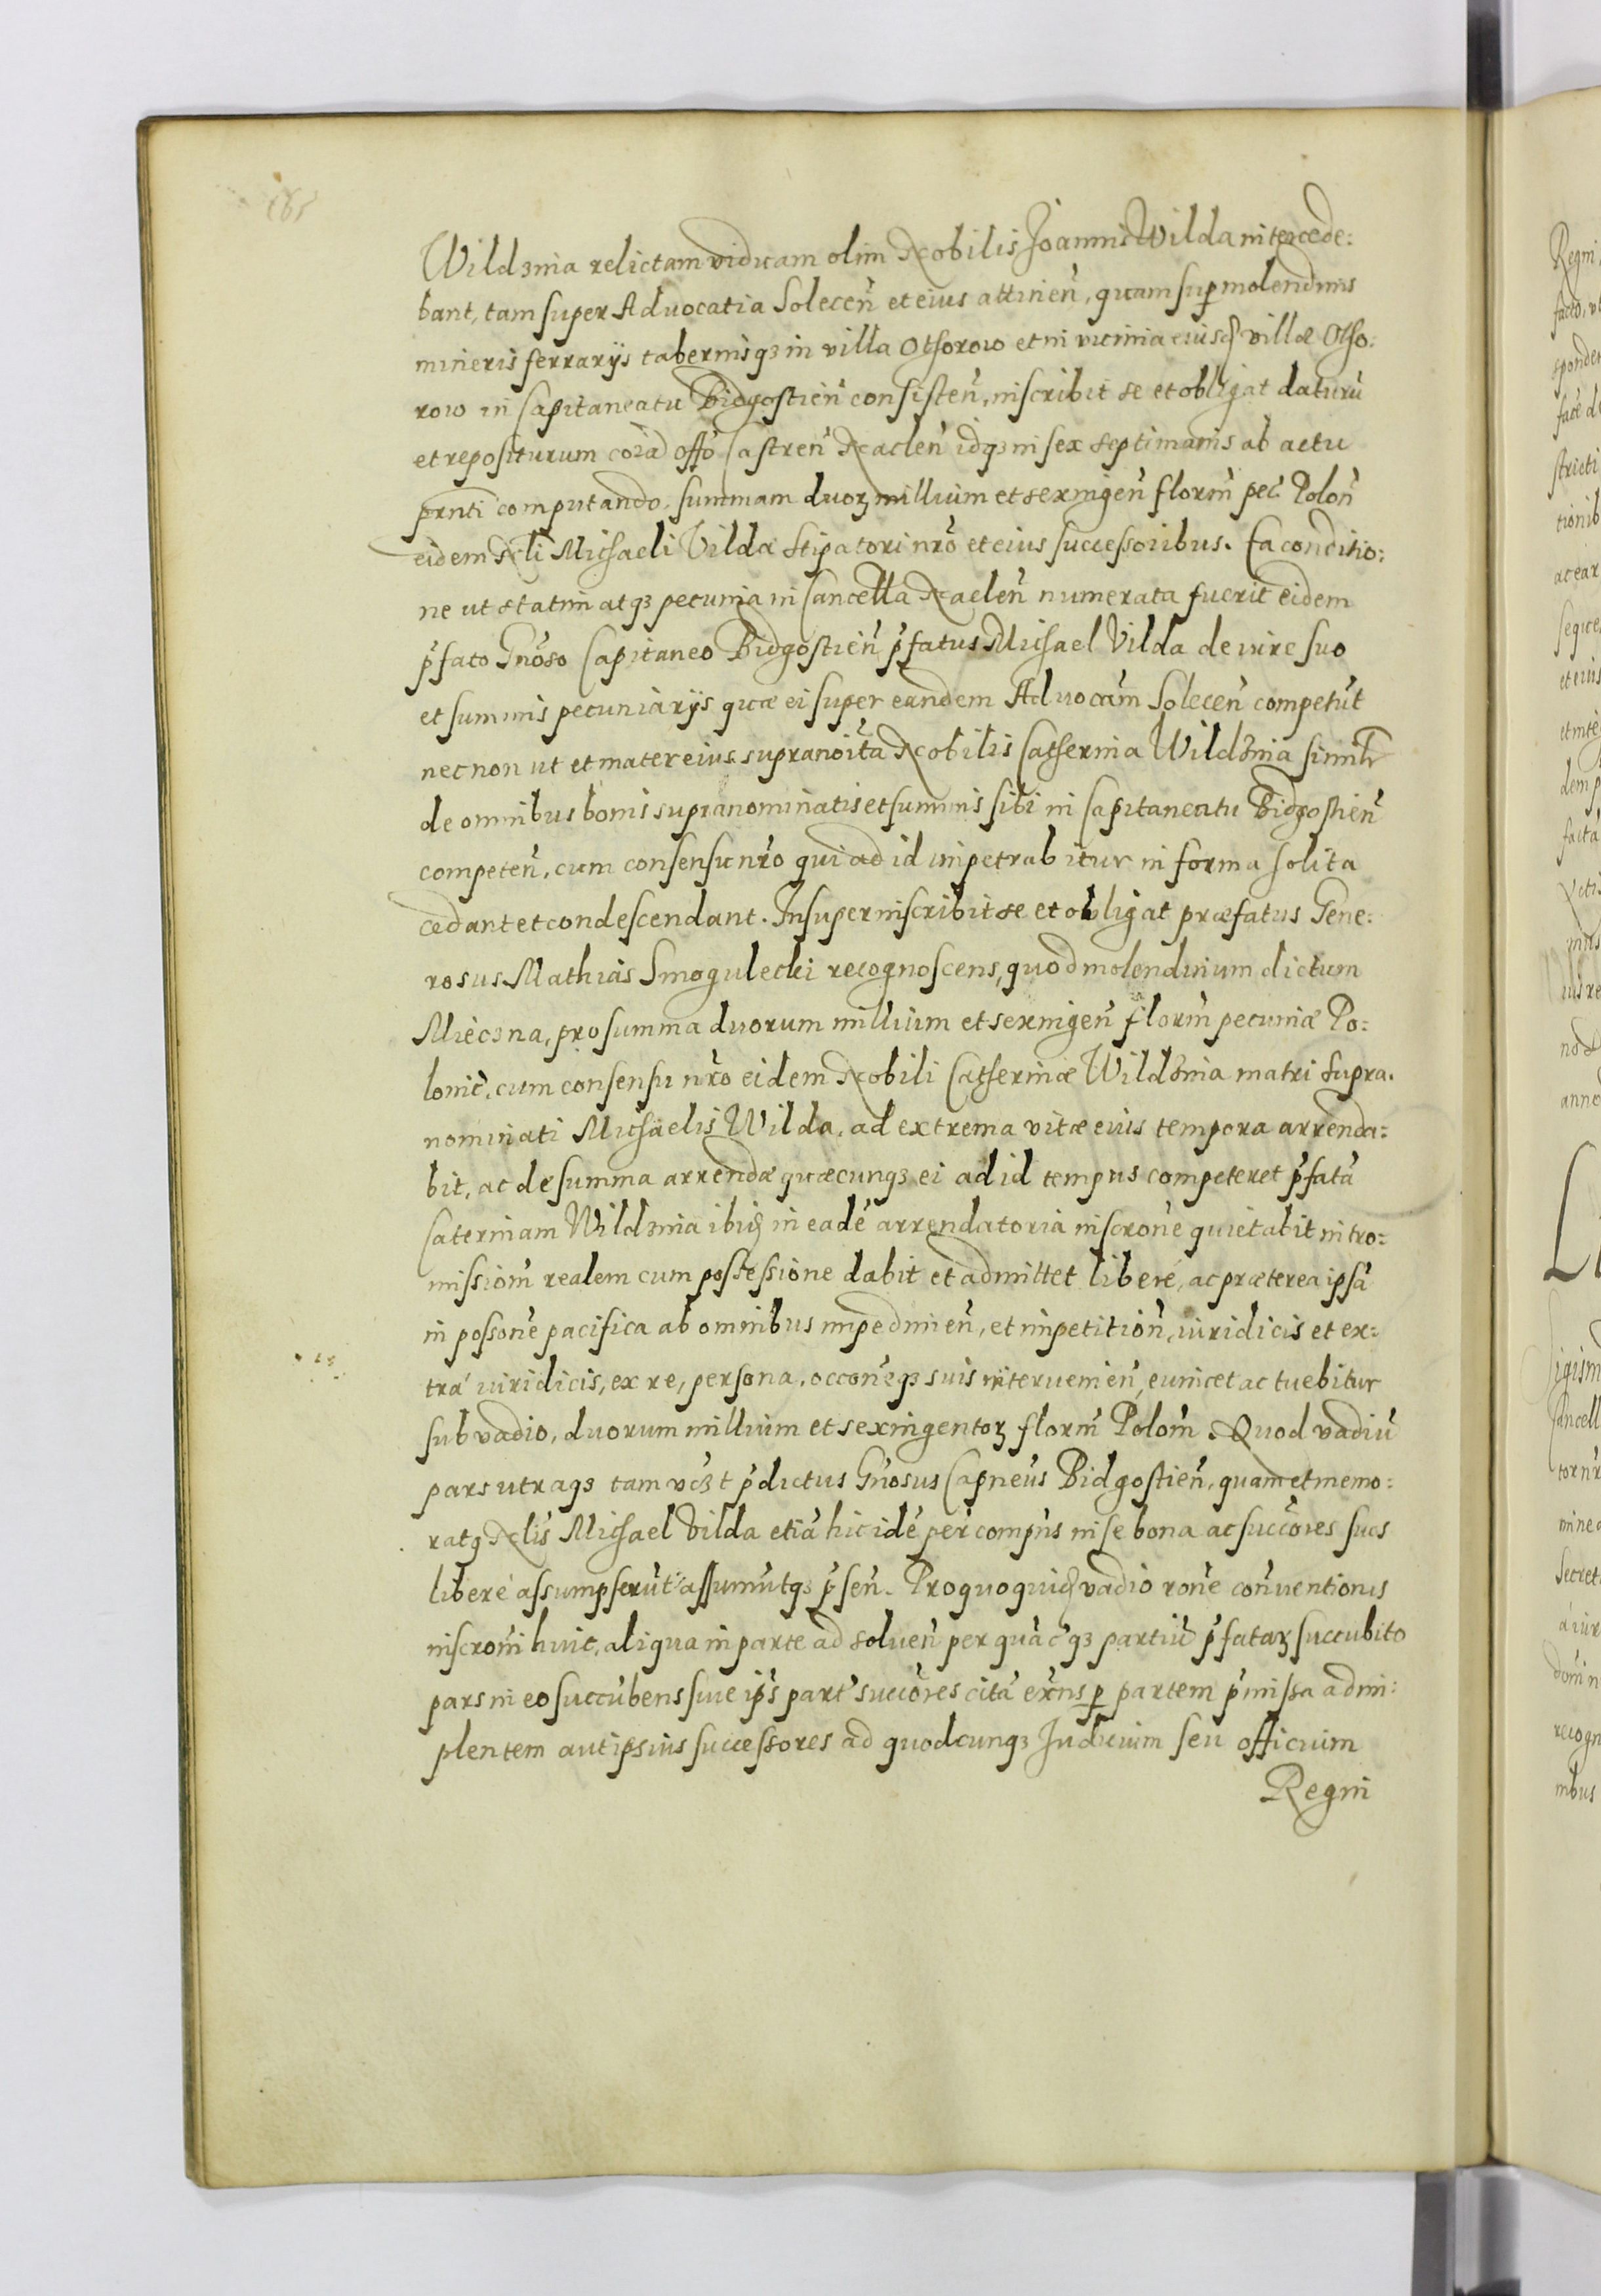 Wildzina relictam viduam olim Nobilis Joannis Wilda intercede:
bant, tam super Advocatia Solecen̄ et eius attinen̄, quam sup molendinis
mineris ferrarÿs tabernisqꝫ in villa Othorowo et in vicinia eiusd villæ Otho:
rowo in Capitaneatu Bidgostien̄ consisten̄, inscribit se et obligat daturū
et repositurum corā Offō Castren̄ Naclen̄ idqꝫ in sex septimanis ab actu
prnti computando, summam duoꝝ millium et sexingen̄ florn̄ pec̄ Polon̄
eidem Nlī Michaeli Vildæ Stipatori nrō et eius successoribus. Ea conditio:
ne ut statim atqꝫ pecunia in Cancella Naclen̄ numerata fuerit eidem
p̄fato Gnōso Capitaneo Bidgostien̄ p̄fatus Michael Vilda de iure suo
et summis pecuniarÿs quæ ei super eandem Advocām Solecen̄ competūt
necnon ut et mater eius supranoīta Nobilis Catherina Wildzina similr̄
de omnibus bonis supranominatis et summis sibi in Capitaneatu Bidgostien̄
competen̄, cum consensu nrō qui ad id impetrabitur in forma solita
cedant et condescendant. Insuper inscribit se et obligat præfatus Gene:
rosus Mathias Smogulecki recognoscens, quod molendinum dictum
Mieczna, pro summa duorum millium et sexingen̄ florn̄ pecuniæ Po:
lonic̄, cum consensu nrō eidem Nobili Catherinæ Wildzina matri supra.
nominati Michaelis Wilda, ad extrema vitæ eius tempora arrenda:
bit, ac de summa arrendæ quæcunqꝫ ei ad id tempus competeret p̄fatā
Caterinam Wildzina ibid in eadē arrendatoria inscronē quietabit intro:
missionī realem cum possessione dabit et admittet liberé, ac præterea ipsā
in possonē pacifica ab omnibus impedimen̄, et impetition̄, iuridicis et ex:
trá iuridicis, ex re, persona, occonēqꝫ suis intervenien̄, evincet ac tuebitur
sub vadio, duorum millium et sexingentoꝝ florn̄ Polon̄. Quod vadiū
pars utraqꝫ tam vczt p̄dictus Gnōsus Capnēus Bidgostien̄, quam et memo:
ratꝯ Nlis Michael Vilda etiā hic idē per compūs in se bona ac succōres suos
liberé assumpserūt assumūtqꝫ p̄sen̄. Pro quo quid vadio ronē conventionis
inscronī huic, aliqua in parte ad solven̄ per quācqꝫ partiū p̄fataꝝ succubito
pars in eo succūbens sive ips̄ part' succōres citā exn̄s p partem p̄missa adim:
plentem aut ipsius successores ad quodcunqꝫ Judicium seu officium
Regni